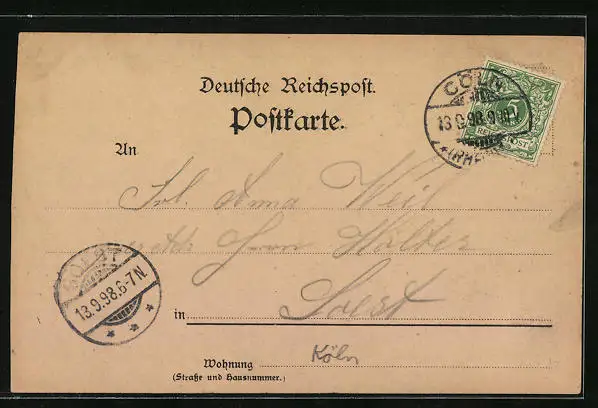 Deutsche Reichspost.
Postkarte.
CÖLN
13.9.98.9-10V.
*(RHEIN)
5
REICHSPOST
An
Frl. Anna Weil
Herrn Walter
SOEST
13.9.98.6-7N.
in Soest
Wohnung Köln
(Straße und Hausnummer.)